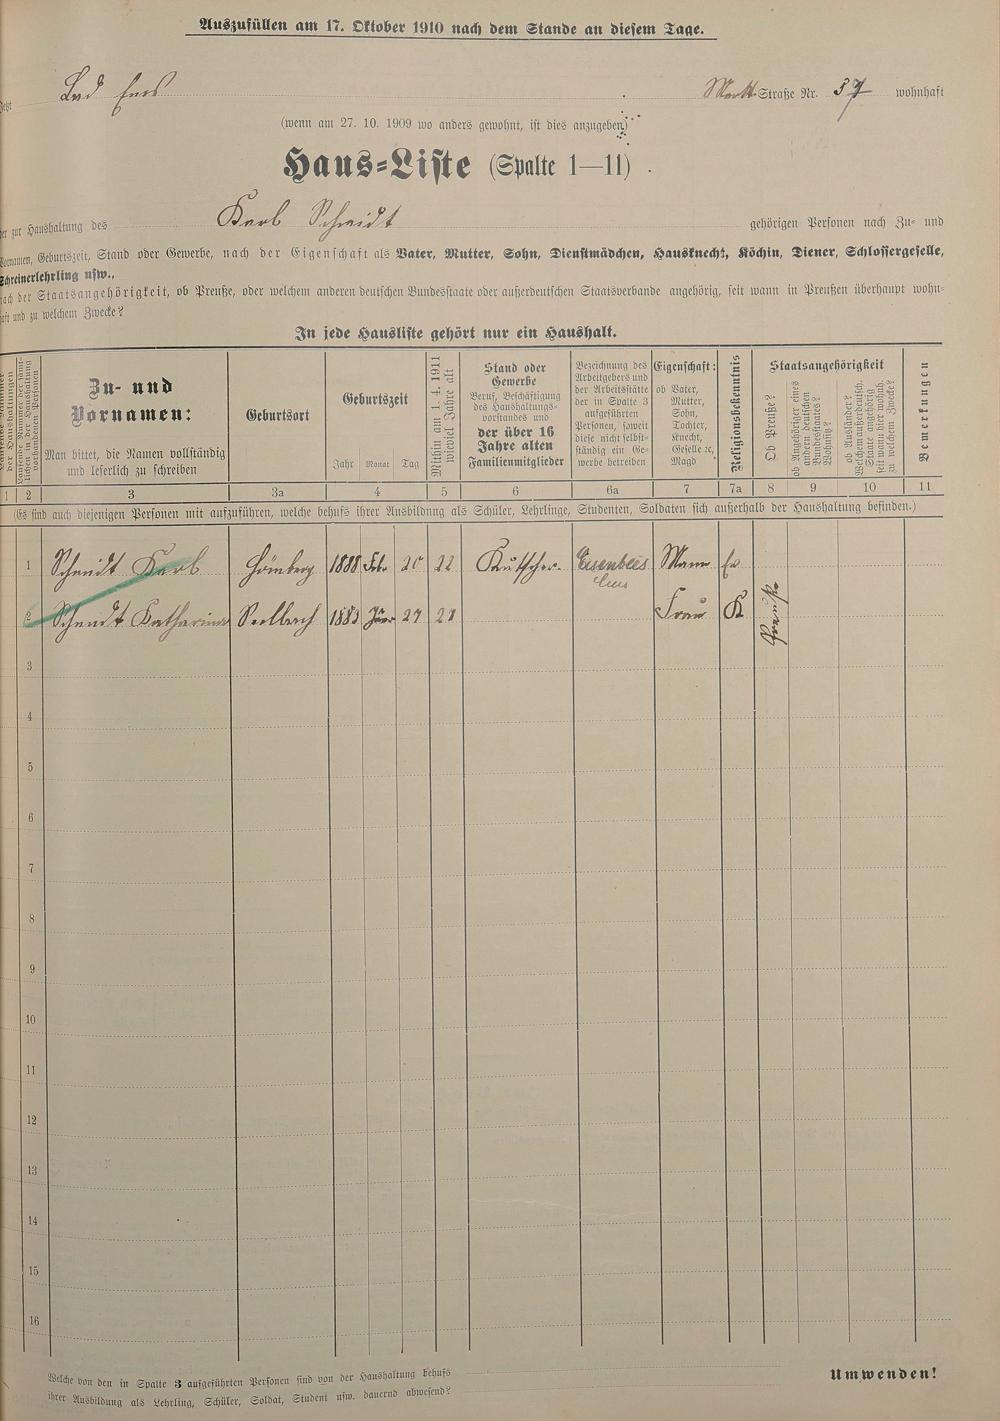 Auszufüllen am 17. Oktober 1910 nach dem Stande an diesem Tage.
Jetzt Bad Ems Markt Straße Nr. 37 wohnhaft
(wenn am 27. 10. 1909 wo anders gewohnt, ist dies anzugeben)
Haus-Liste (Spalte 1—11)
der zur Haushaltung des Karl Scheidt gehörigen Personen nach Zu- und
Vornamen, Geburtszeit, Stand oder Gewerbe, nach der Eigenschaft als Vater, Mutter, Sohn, Dienstmädchen, Hausknecht, Köchin, Diener, Schlossergeselle,
Schreinerlehrling usw.,
nach der Staatsangehörigkeit, ob Preuße, oder welchem anderen deutschen Bundesstaate oder außerdeutschen Staatsverbande angehörig, seit wann in Preußen überhaupt wohn-
haft und zu welchem Zwecke?
In jede Hausliste gehört nur ein Haushalt.
der Haushaltungen
Laufende Nummer der sämt-
lichen in der Haushaltung
vorhandenen Personen
Zu- und
Vornamen:
Man bittet, die Namen vollständig
und leserlich zu schreiben
Geburtsort
Geburtszeit
Jahr Monat Tag
Mithin am 1. 4. 1911
wieviel Jahre alt
Stand oder
Gewerbe
Beruf, Beschäftigung
des Haushaltungs-
vorstandes und
der über 16
Jahre alten
Familienmitglieder
Bezeichnung des
Arbeitgebers und
der Arbeitsstätte
der in Spalte 3
aufgeführten
Personen, soweit
diese nicht selbst-
ständig ein Ge-
werbe betreiben
Eigenschaft:
ob Vater,
Mutter,
Sohn,
Tochter,
Knecht,
Geselle ꝛc,
Magd
Religionsbekenntnis
Staatsangehörigkeit
Ob Preuße?
ob Angehöriger eines
andern deutschen
Bundesstaates?
Wohnsitz?
ob Ausländer?
Welchem außerdeutsch.
Staate angehörig
seit wann hier wohnh.
zu welchem Zwecke?
Bemerkungen
1 2 3 3a 4 5 6 6a 7 7a 8 9 10 11
(Es sind auch diejenigen Personen mit aufzuführen, welche behufs ihrer Ausbildung als Schüler, Lehrlinge, Studenten, Soldaten sich außerhalb der Haushaltung befinden.)
1 Scheidt Karl Hömberg 1888 Febr 20 22 Kutscher Mann Ev
Ems
2 Scheidt Katharina Seelbach 1883 27 Frau K
Preuße
3
4
5
6
7
8
9
10
11
12
13
14
15
16
Welche von den in Spalte 3 aufgeführten Personen sind von der Haushaltung behufs
ihrer Ausbildung als Lehrling, Schüler, Soldat, Student usw. dauernd abwesend?
Umwenden!